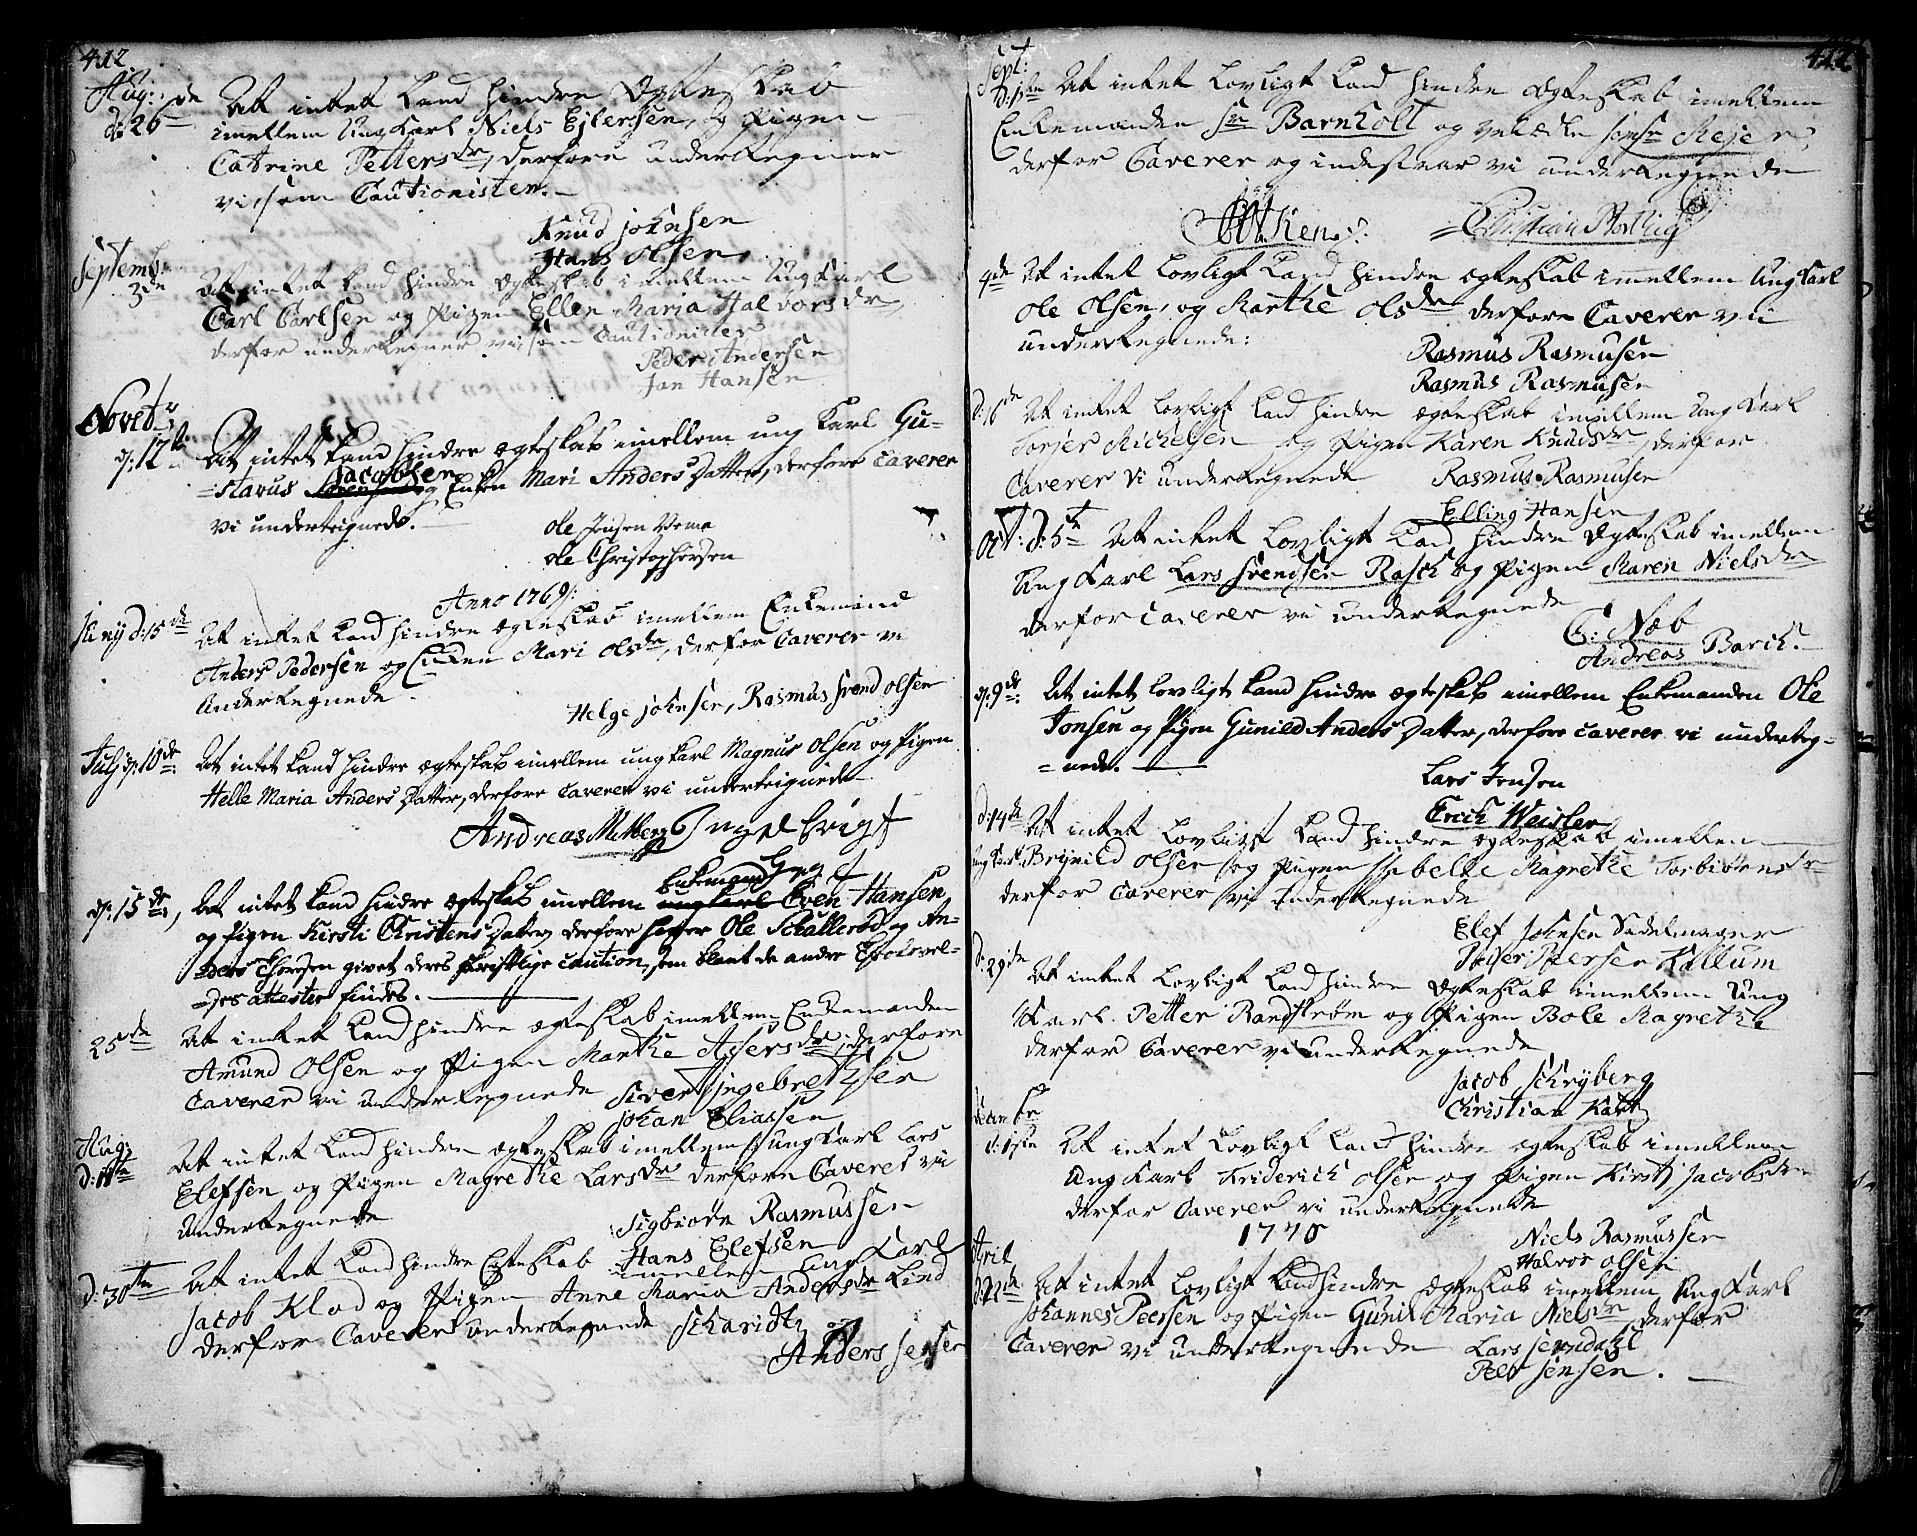 412
Aug:
d: 26de At intet Kand hindre Egteskab
imellem Ung Karl Niels Ejlersen, og Pigen
Catrine Pettersdr, derfore underteigner
vi som Cautionister.
Knud Johnsen
Hans Olsen
Septembr:
3de At intet Kand hindre Egteskab imellem Ung Karl
Carl Carlsen og Pigen Ellen Maria Halvorsdr,
derfor underteigner vi som Cautionister
Peder Andersen
Jan Hansen
Novetr
d: 12te At intet Kand hindre egteskab imellem ung Karl Gu-
=stavus Jacobsen og Enken Mari Anders Datter, derfore Caverer
vi underteignede.
Ole Jensen Vema
Ole Christophersen
Anno 1769:
Juny d: 15de At intet Kand hindre Egteskab imellem Enkemand
Anders Pedersen og Enken Mari Olsdr, derfor Caverer vi
Underteignede
Helge Johnsen, Rasmus Svend Olsen
July d: 10de: At intet Kand hindre egteskab imellem ung Karl Magnus Olsen og Pigen
Helle Maria Anders Datter, derfore Caverer vi underteignede
Andreas Ingelbrigt
d: 15de, At intet Kand hindre egteskab imellem Enkemand Even Hansen
og Pigen Kirsti Christens Datter, derfore haver Ole Schallerød og An-
=ders Thoresen givet deres skriftlige Caution, som blant de andre
=des attester findes.
25de At intet Kand hindre egteskab imellem Enkemanden
Amund Olsen og Pigen Marthe Asersdr, derfore
Caverer vi underteignede Siver Ingebretsen
Johan Eliassen
Aug:
d: 11te At intet Kand hindre egteskab imellem Ung Karl Lars
Elefsen og Pigen Magrethe Larsdr derfore Caverer vi
Underteignede
Sigbiørn Rasmussen
Hans Elefsen
d: 30te At intet Kand hindre Egteskab imellem Ung Karl
Jacob Klod og Pigen Anne Maria Andersdr Lind
derfor Caverer underteignede Scharidt og
Anders Jensen
412
Sept:
d: 1ste At intet Lovligt Kand hindre Egteskab imellem
Enkemanden Sr Barnholt og Jomfr Mejer,
derfor Caverer og indestaar vi underteignede
Christian
4de At intet Lovligt Kand hindre egteskab imellem Ung Karl
Ole Olsen, og Marthe Olsdr derfore Caverer vi
underteignede:
Rasmus Rasmusen
Rasmus Rasmusen
d: 16de At intet lovligt Kand hindre egteskab imellem Ung Karl
Torjer Michelsen og Pigen Karen Knudsdr, derfor
Caverer vi underteignede
Rasmus Rasmusen
Elling Hansen
Oct: d: 5te At intet Lovligt Kand hindre Egteskab imellem
Ung Karl Lars Svendsen Rasch og Pigen Maren Nielsdr
derfor Caverer vi underteignede
C: Næb
Andreas Barch.
d: 9de: At intet lovligt kand hindre egteskab imellem Enkemanden Ole
Jonsen og Pigen Gunild Anders Datter, derfore caverer vi underteg-
=nede.
Lars Jensen
Erich Weisler
d: 14de At intet Lovligt Kand hindre egteskab imellem
Ung Karl Brynild Olsen og Pigen Isebelle Magrethe Torbiørnsdr
derfor Caverer vi Underteignede
Elef Johnsen Sadelmager
Peder Peersen Kallum
d: 29de At intet Lovligt Kand hindre Egteskab imellem Ung
Karl Petter Randstrøm og Pigen Bole Magrethe
derfor Caverer vi underteignede
Jacob Schryberg
Christian Katt
Decembr
d: 1ste At intet Lovligt Kand hindre egteskab imellem
Ung Karl Friderich Olsen og Pigen Kirsti Jacobsdr
derfor Caverer vi underteignede
Niels Rasmussen
Halvor Olsen
1770
April
d: 22de At intet Lovligt Kand hindre egteskab imellem Ung Karl
Johannes Peersen og Pigen Gunil Maria Nielsdr, derfor
Caverer vi underteignede Lars Svendahl
Peer Jensen.